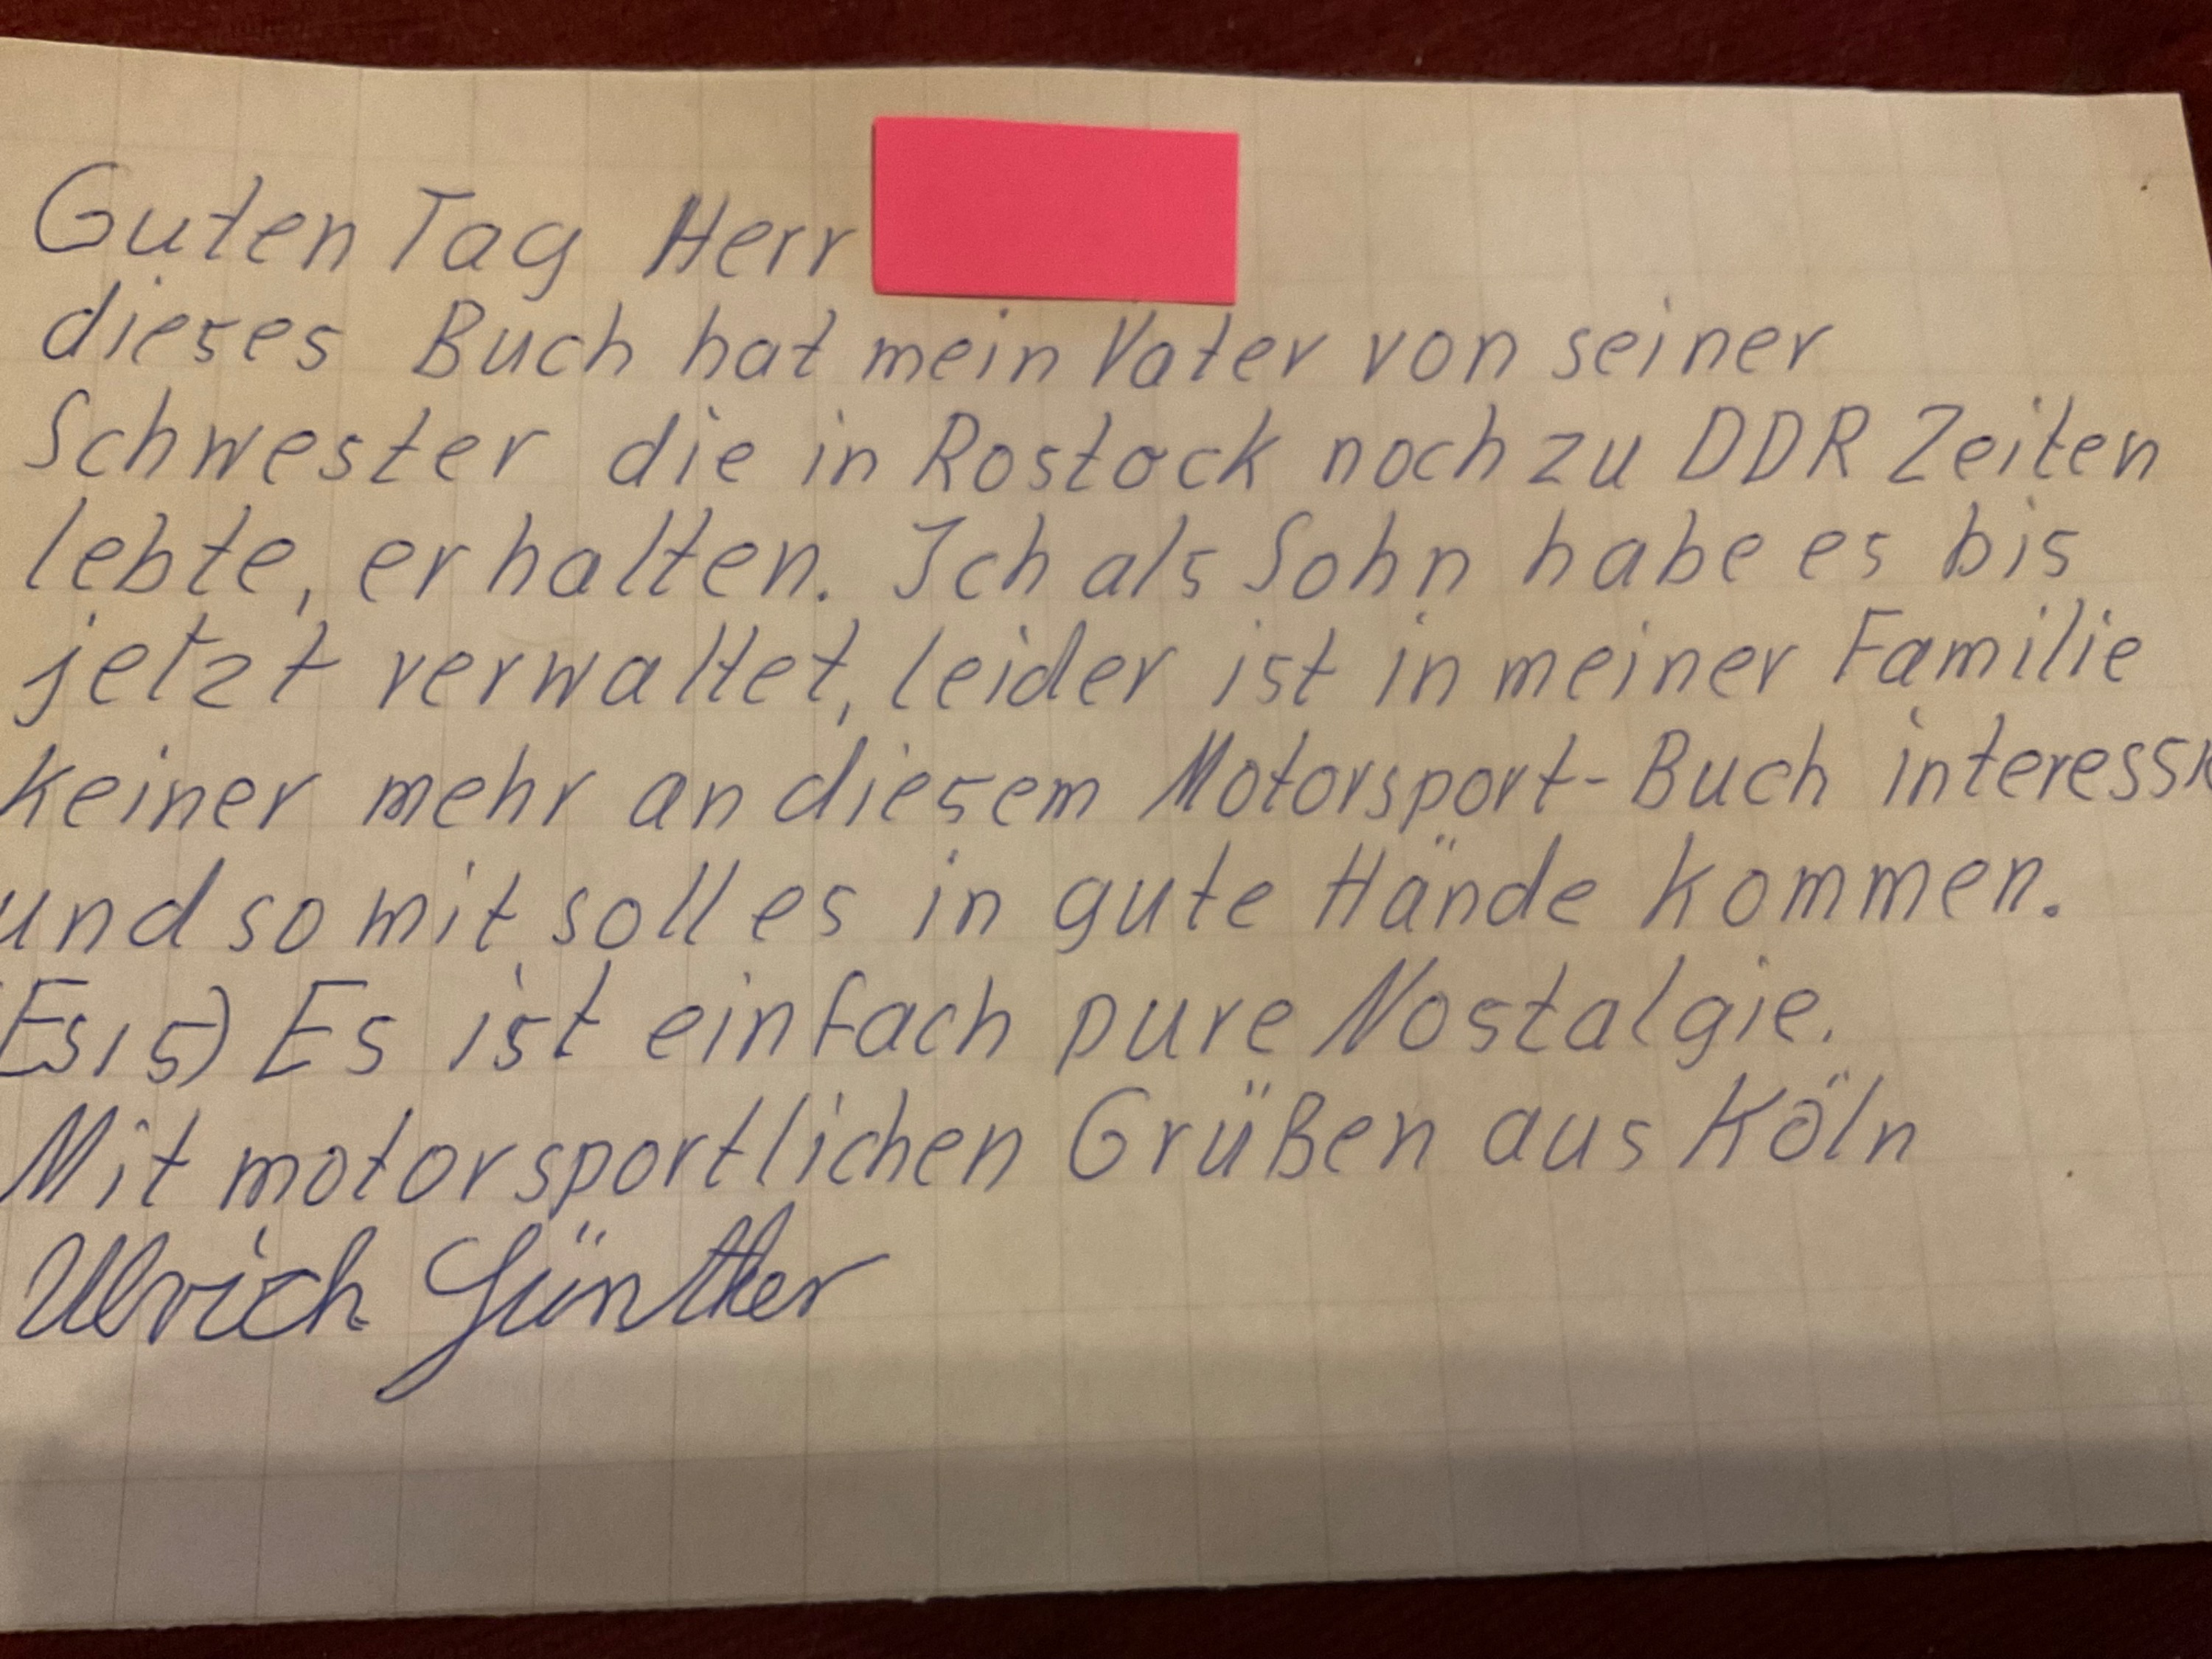 Guten Tag Herr
dieses Buch hat mein Vater von seiner
Schwester die in Rostock noch zu DDR Zeiten
lebte, erhalten. Ich als Sohn habe es bis
jetzt verwaltet, leider ist in meiner Familie
keiner mehr an diesem Motorsport-Buch
und somit soll es in gute Hände kommen.
(Es is) Es ist einfach pure Nostalgie.
Mit motorsportlichen Grüßen aus Köln
Ulrich Günther